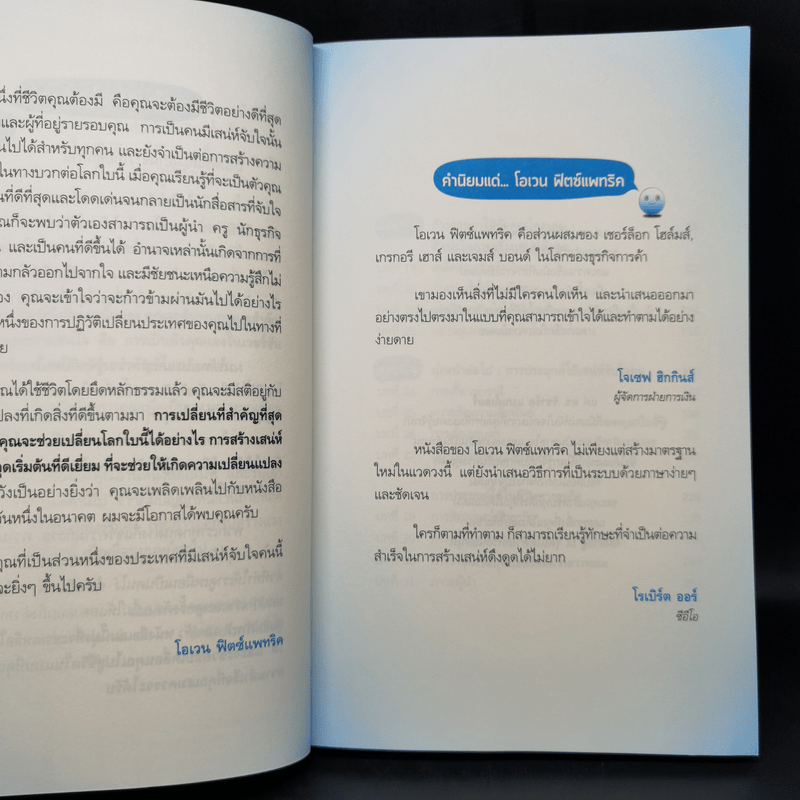 นึ่งที่ชีวิตคุณต้องมี คือคุณจะต้องมีชีวิตอย่างดีที่สุด
และผู้ที่อยู่รายรอบคุณ การเป็นคนมีเสน่ห์จับใจนั้น
นไปได้สำหรับทุกคน และยังจำเป็นต่อการสร้างความ
ในทางบวกต่อโลกใบนี้ เมื่อคุณเรียนรู้ที่จะเป็นตัวคุณ
นที่ดีที่สุดและโดดเด่นจนกลายเป็นนักสื่อสารที่จับใจ
ณก็จะพบว่าตัวเองสามารถเป็นผู้นำ ครู นักธุรกิจ
และเป็นคนที่ดีขึ้นได้ อำนาจเหล่านั้นเกิดจากการที่
ามกลัวออกไปจากใจ และมีชัยชนะเหนือความรู้สึกไม่
อง คุณจะเข้าใจว่าจะก้าวข้ามผ่านมันไปได้อย่างไร
หนึ่งของการปฏิวัติเปลี่ยนประเทศของคุณไปในทางที่
ย
ณได้ใช้ชีวิตโดยยึดหลักธรรมแล้ว คุณจะมีสติอยู่กับ
ปลงที่เกิดสิ่งที่ดีขึ้นตามมา การเปลี่ยนที่สำคัญที่สุด
คุณจะช่วยเปลี่ยนโลกใบนี้ได้อย่างไร การสร้างเสน่ห์
จุดเริ่มต้นที่ดีเยี่ยม ที่จะช่วยให้เกิดความเปลี่ยนแปลง
วังเป็นอย่างยิ่งว่า คุณจะเพลิดเพลินไปกับหนังสือ
วันหนึ่งในอนาคต ผมจะมีโอกาสได้พบคุณครับ
คุณที่เป็นส่วนหนึ่งของประเทศที่มีเสน่ห์จับใจคนนี้
จะยิ่งๆ ขึ้นไปครับ
โอเวน ฟิตซ์แพทริค
คำนิยมแด่... โอเวน ฟิตซ์แพทริค
โอเวน ฟิตซ์แพทริค คือส่วนผสมของ เชอร์ล็อก โฮล์มส์,
เกรกอรี เฮาส์ และเจมส์ บอนด์ ในโลกของธุรกิจการค้า
เขามองเห็นสิ่งที่ไม่มีใครคนใดเห็น และนำเสนอออกมา
อย่างตรงไปตรงมาในแบบที่คุณสามารถเข้าใจได้และทำตามได้อย่าง
ง่ายดาย
โจเซฟ ฮิกกินส์
ผู้จัดการฝ่ายการเงิน
หนังสือของ โอเวน ฟิตซ์แพทริค ไม่เพียงแต่สร้างมาตรฐาน
ใหม่ในแวดวงนี้ แต่ยังนำเสนอวิธีการที่เป็นระบบด้วยภาษาง่ายๆ
และชัดเจน
ใครก็ตามที่ทำตาม ก็สามารถเรียนรู้ทักษะที่จำเป็นต่อความ
สำเร็จในการสร้างเสน่ห์ดึงดูดได้ไม่ยาก
โรเบิร์ต ออร์
ซีอีโอ